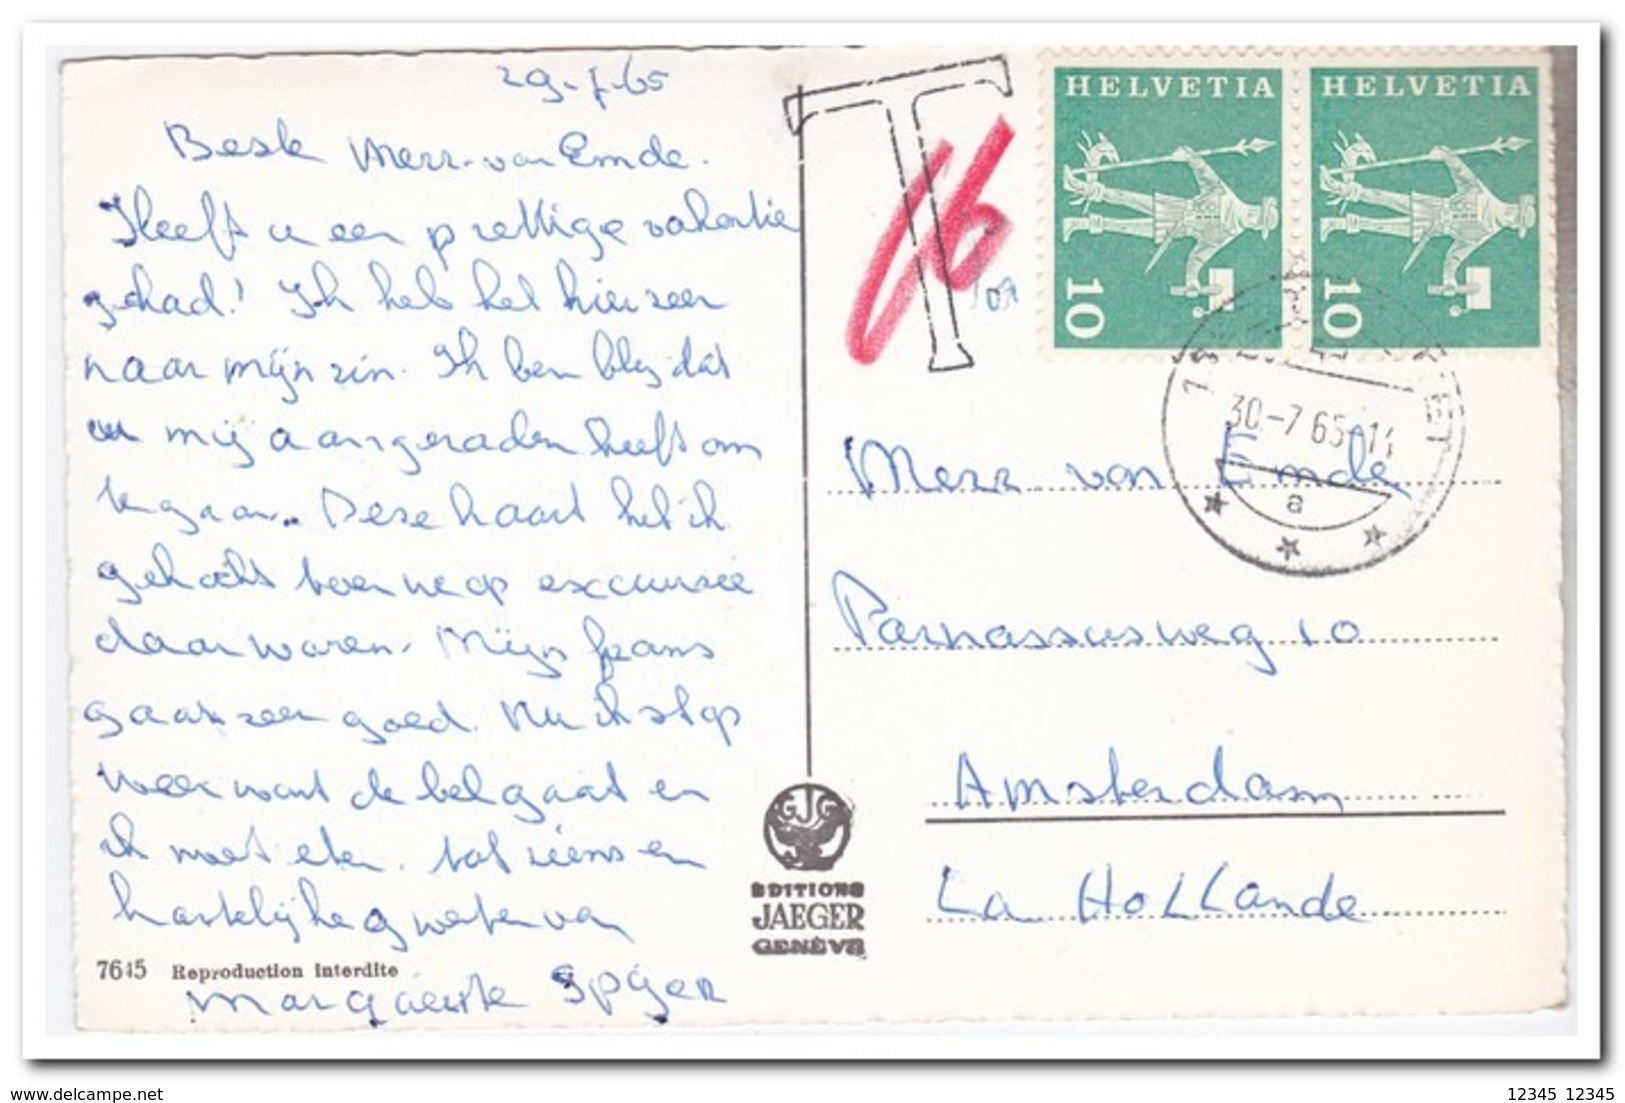 29-7-65
Beste Merr. van Emde.
Heeft u een prettige vakantie
gehad! Ik heb het hier zeer
naar mijn zin. Ik ben blij dat
u mij aangeraden heeft om
te gaan. Deze kaart heb ik
gekocht toen we op excursie
daar waren. Mijn frans
gaat zeer goed. Nu ik stop
weer want de bel gaat en
ik moet eten. tot ziens en
hartelijke groeten van
Marguerite Spijer
7645 Reproduction interdite
GJG
EDITIONS
JAEGER
GENÈVE
T
16
HELVETIA
10
HELVETIA
10
30-7 65-14
a
Merr. van Emde
Parnassusweg 10
Amsterdam
La Hollande
12345 12345